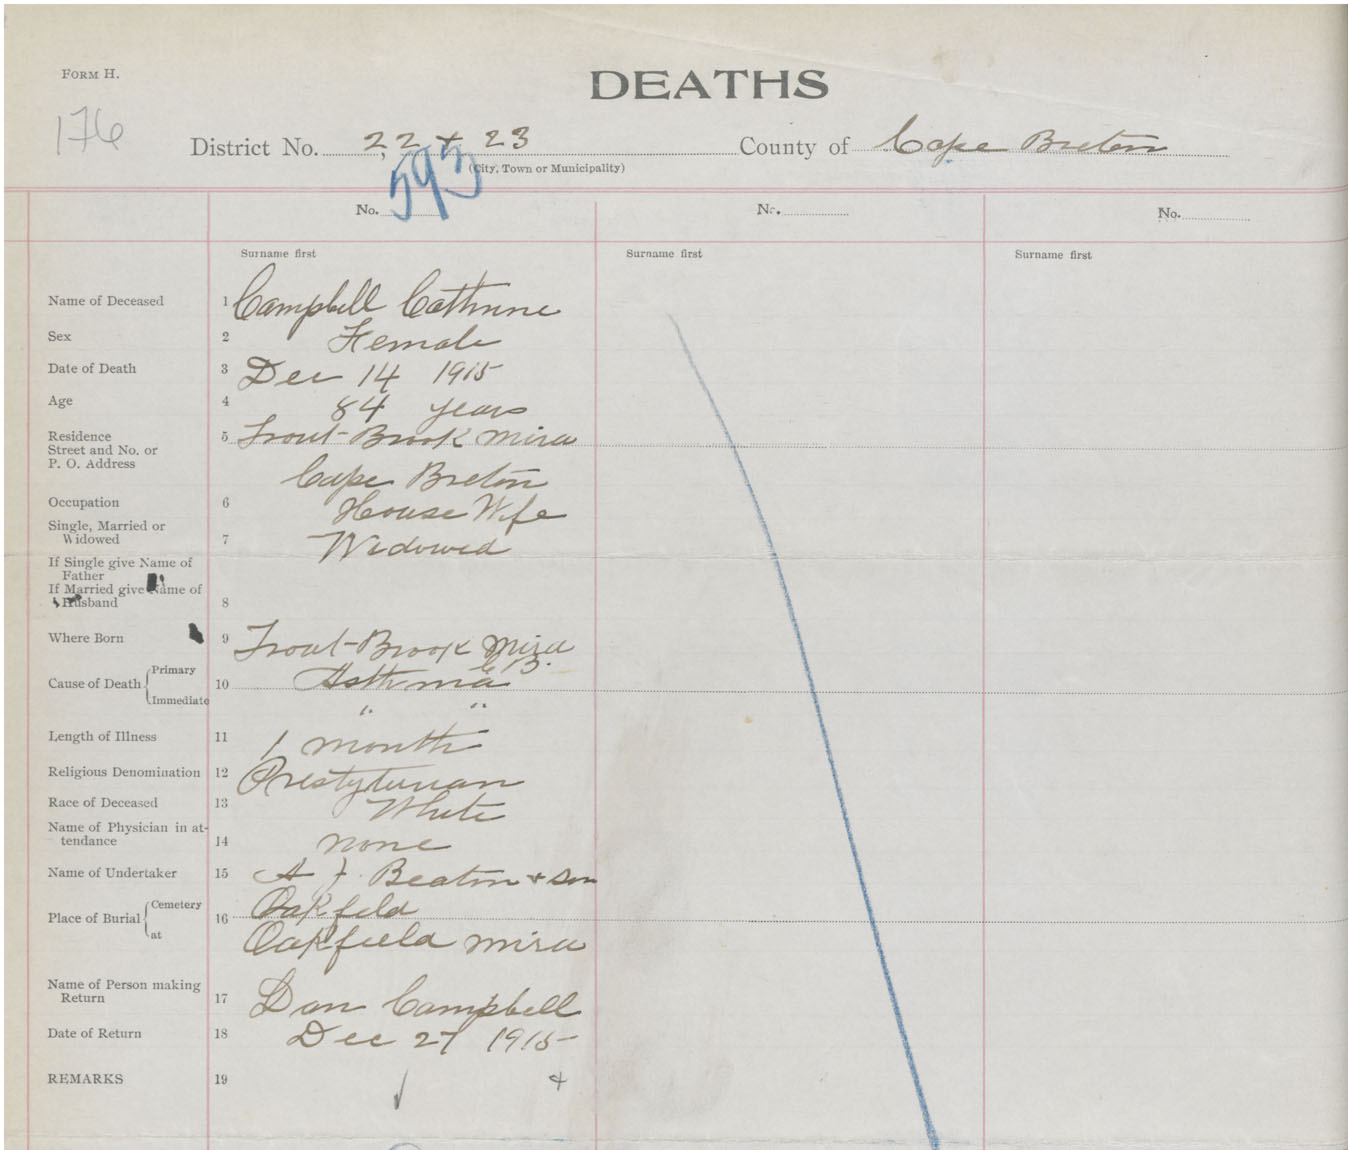 FORM H.
DEATHS
176
District No. 22 + 23 County of Cape Breton
(City, Town or Municipality)
No. 593 No. No.
Surname first Surname first Surname first
Name of Deceased 1 Campbell Cathrine
Sex 2 Female
Date of Death 3 Dec 14 1915
Age 4 84 years
Residence 5 Trout-Brook Mira
Street and No. or
P. O. Address
Cape Breton
Occupation 6 House Wife
Single, Married or
Widowed 7 Widowed
If Single give Name of
Father
If Married give Name of
Husband 8
Where Born 9 Trout-Brook Mira
C B.
Cause of Death Primary 10 Asthma
Immediate " "
Length of Illness 11 1 month
Religious Denomination 12 Prestyterian
Race of Deceased 13 White
Name of Physician in at-
tendance 14 none
Name of Undertaker 15 A J. Beaton + son
Place of Burial Cemetery 16 Oakfeld
at Oakfield Mira
Name of Person making
Return 17 Dan Campbell
Date of Return 18 Dec 27 1915
REMARKS 19